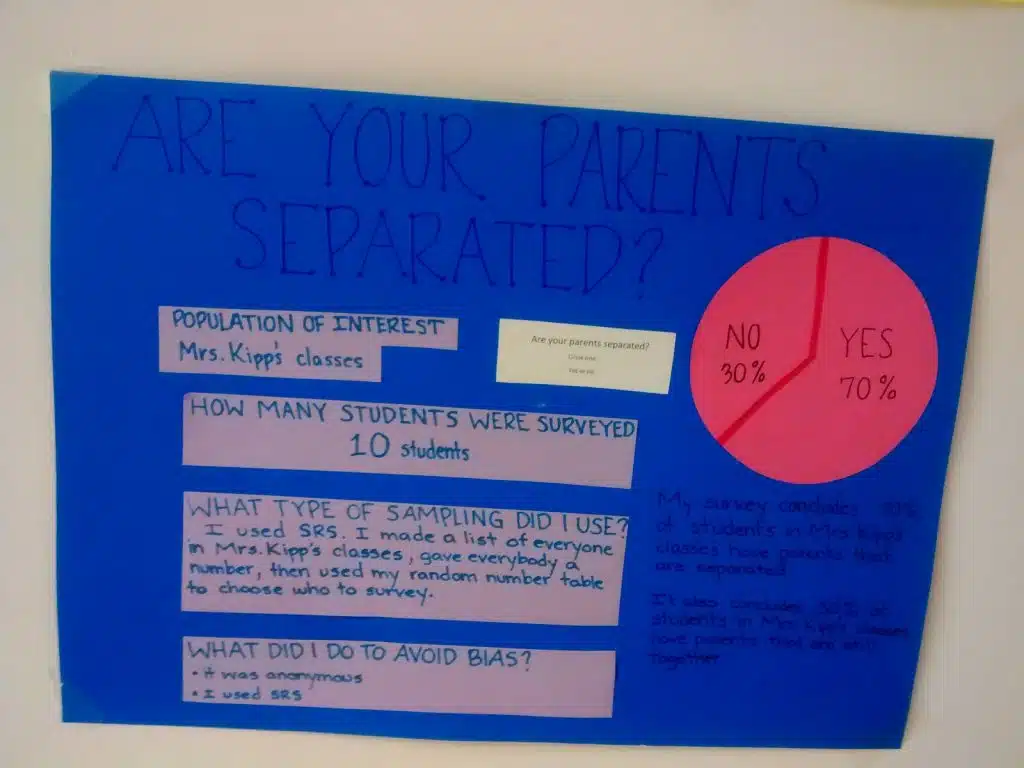 ARE YOUR PARENTS
SEPARATED?
POPULATION OF INTEREST
Mrs. Kipp's classes
Are your parents separated?
Circle one
Yes or no
HOW MANY STUDENTS WERE SURVEYED
10 students
WHAT TYPE OF SAMPLING DID I USE?
I used SRS. I made a list of everyone
in Mrs. Kipp's classes, gave everybody a
number, then used my random number table
to choose who to survey.
WHAT DID I DO TO AVOID BIAS?
• it was anonymous
• I used SRS
NO
30%
YES
70%
My survey concludes
of students in Mrs Kipp's
classes have parents that
are separated
It also concludes 30% of
students in Mrs Kipp's classes
have parents that are still
together